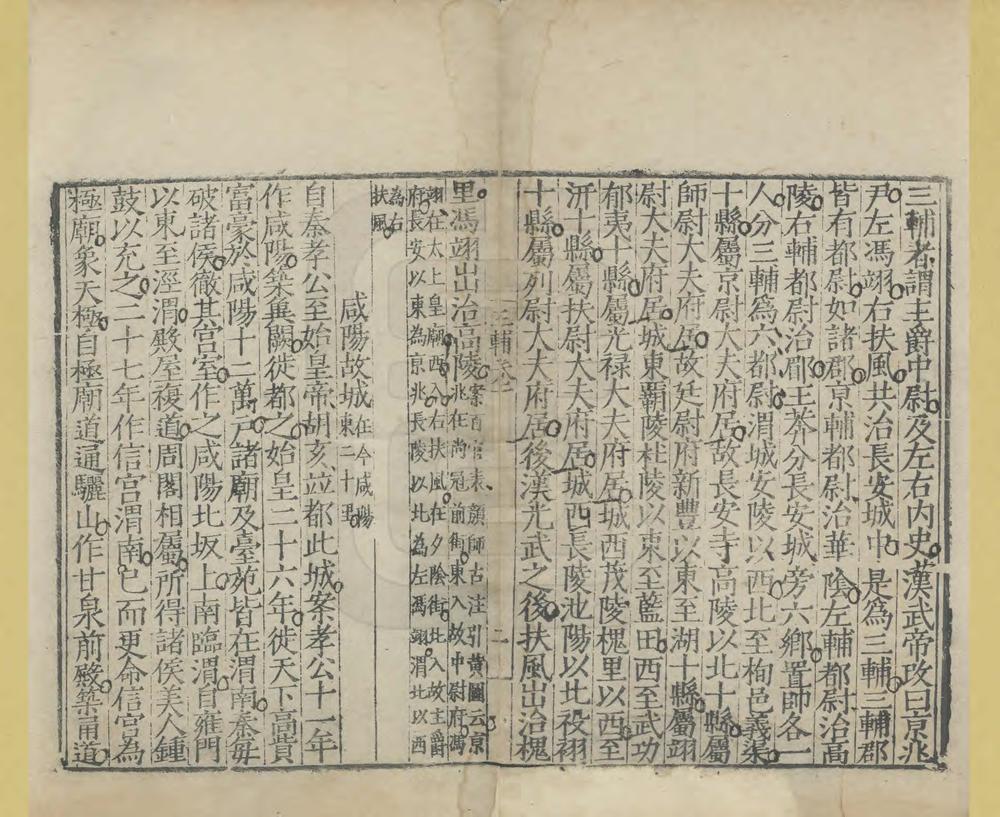 三輔者謂主爵中尉及左右内史漢武帝改曰京兆
尹左馮翊右扶風共治長安城中是爲三輔三輔郡
皆有都尉如諸郡京輔都尉治華陰左輔都尉治高
陵右輔都尉治郿王莽分長安城旁六鄉置帥各一
人分三輔爲六都尉渭城安陵以西北至栒邑義渠
十縣屬京尉大夫府居故長安寺高陵以北十縣屬
師尉大夫府居故廷尉府新豐以東至湖十縣屬翊
尉大夫府居城東覇陵杜陵以東至藍田西至武功
郁夷十縣屬光禄大夫府居城西茂陵槐里以西至
汧十縣屬扶尉大夫府居城西長陵池陽以北祋祤
十縣屬列尉大夫府居後漢光武之後扶風出治槐
三輔卷一
二
里馮翊出治高陵案百官表顔師古注引黄圖云京
兆在尚冠前街東入故中尉府馮
翊在太上皇廟西入右扶風在夕陰街北入故主爵
府長安以東為京兆長陵以北為左馮翊渭北以西
為右
扶風
咸陽故城在今咸陽
東二十里
自秦孝公至始皇帝胡亥竝都此城案孝公十一年
作咸陽築冀闕徙都之始皇二十六年徙天下高貲
富豪於咸陽十二萬戸諸廟及臺苑皆在渭南秦每
破諸侯徹其宫室作之咸陽北坂上南臨渭自雍門
以東至涇渭殿屋複道周閣相屬所得諸侯美人鍾
鼓以充之二十七年作信宫渭南已而更命信宫為
極廟象天極自極廟道通驪山作甘泉前殿築甬道